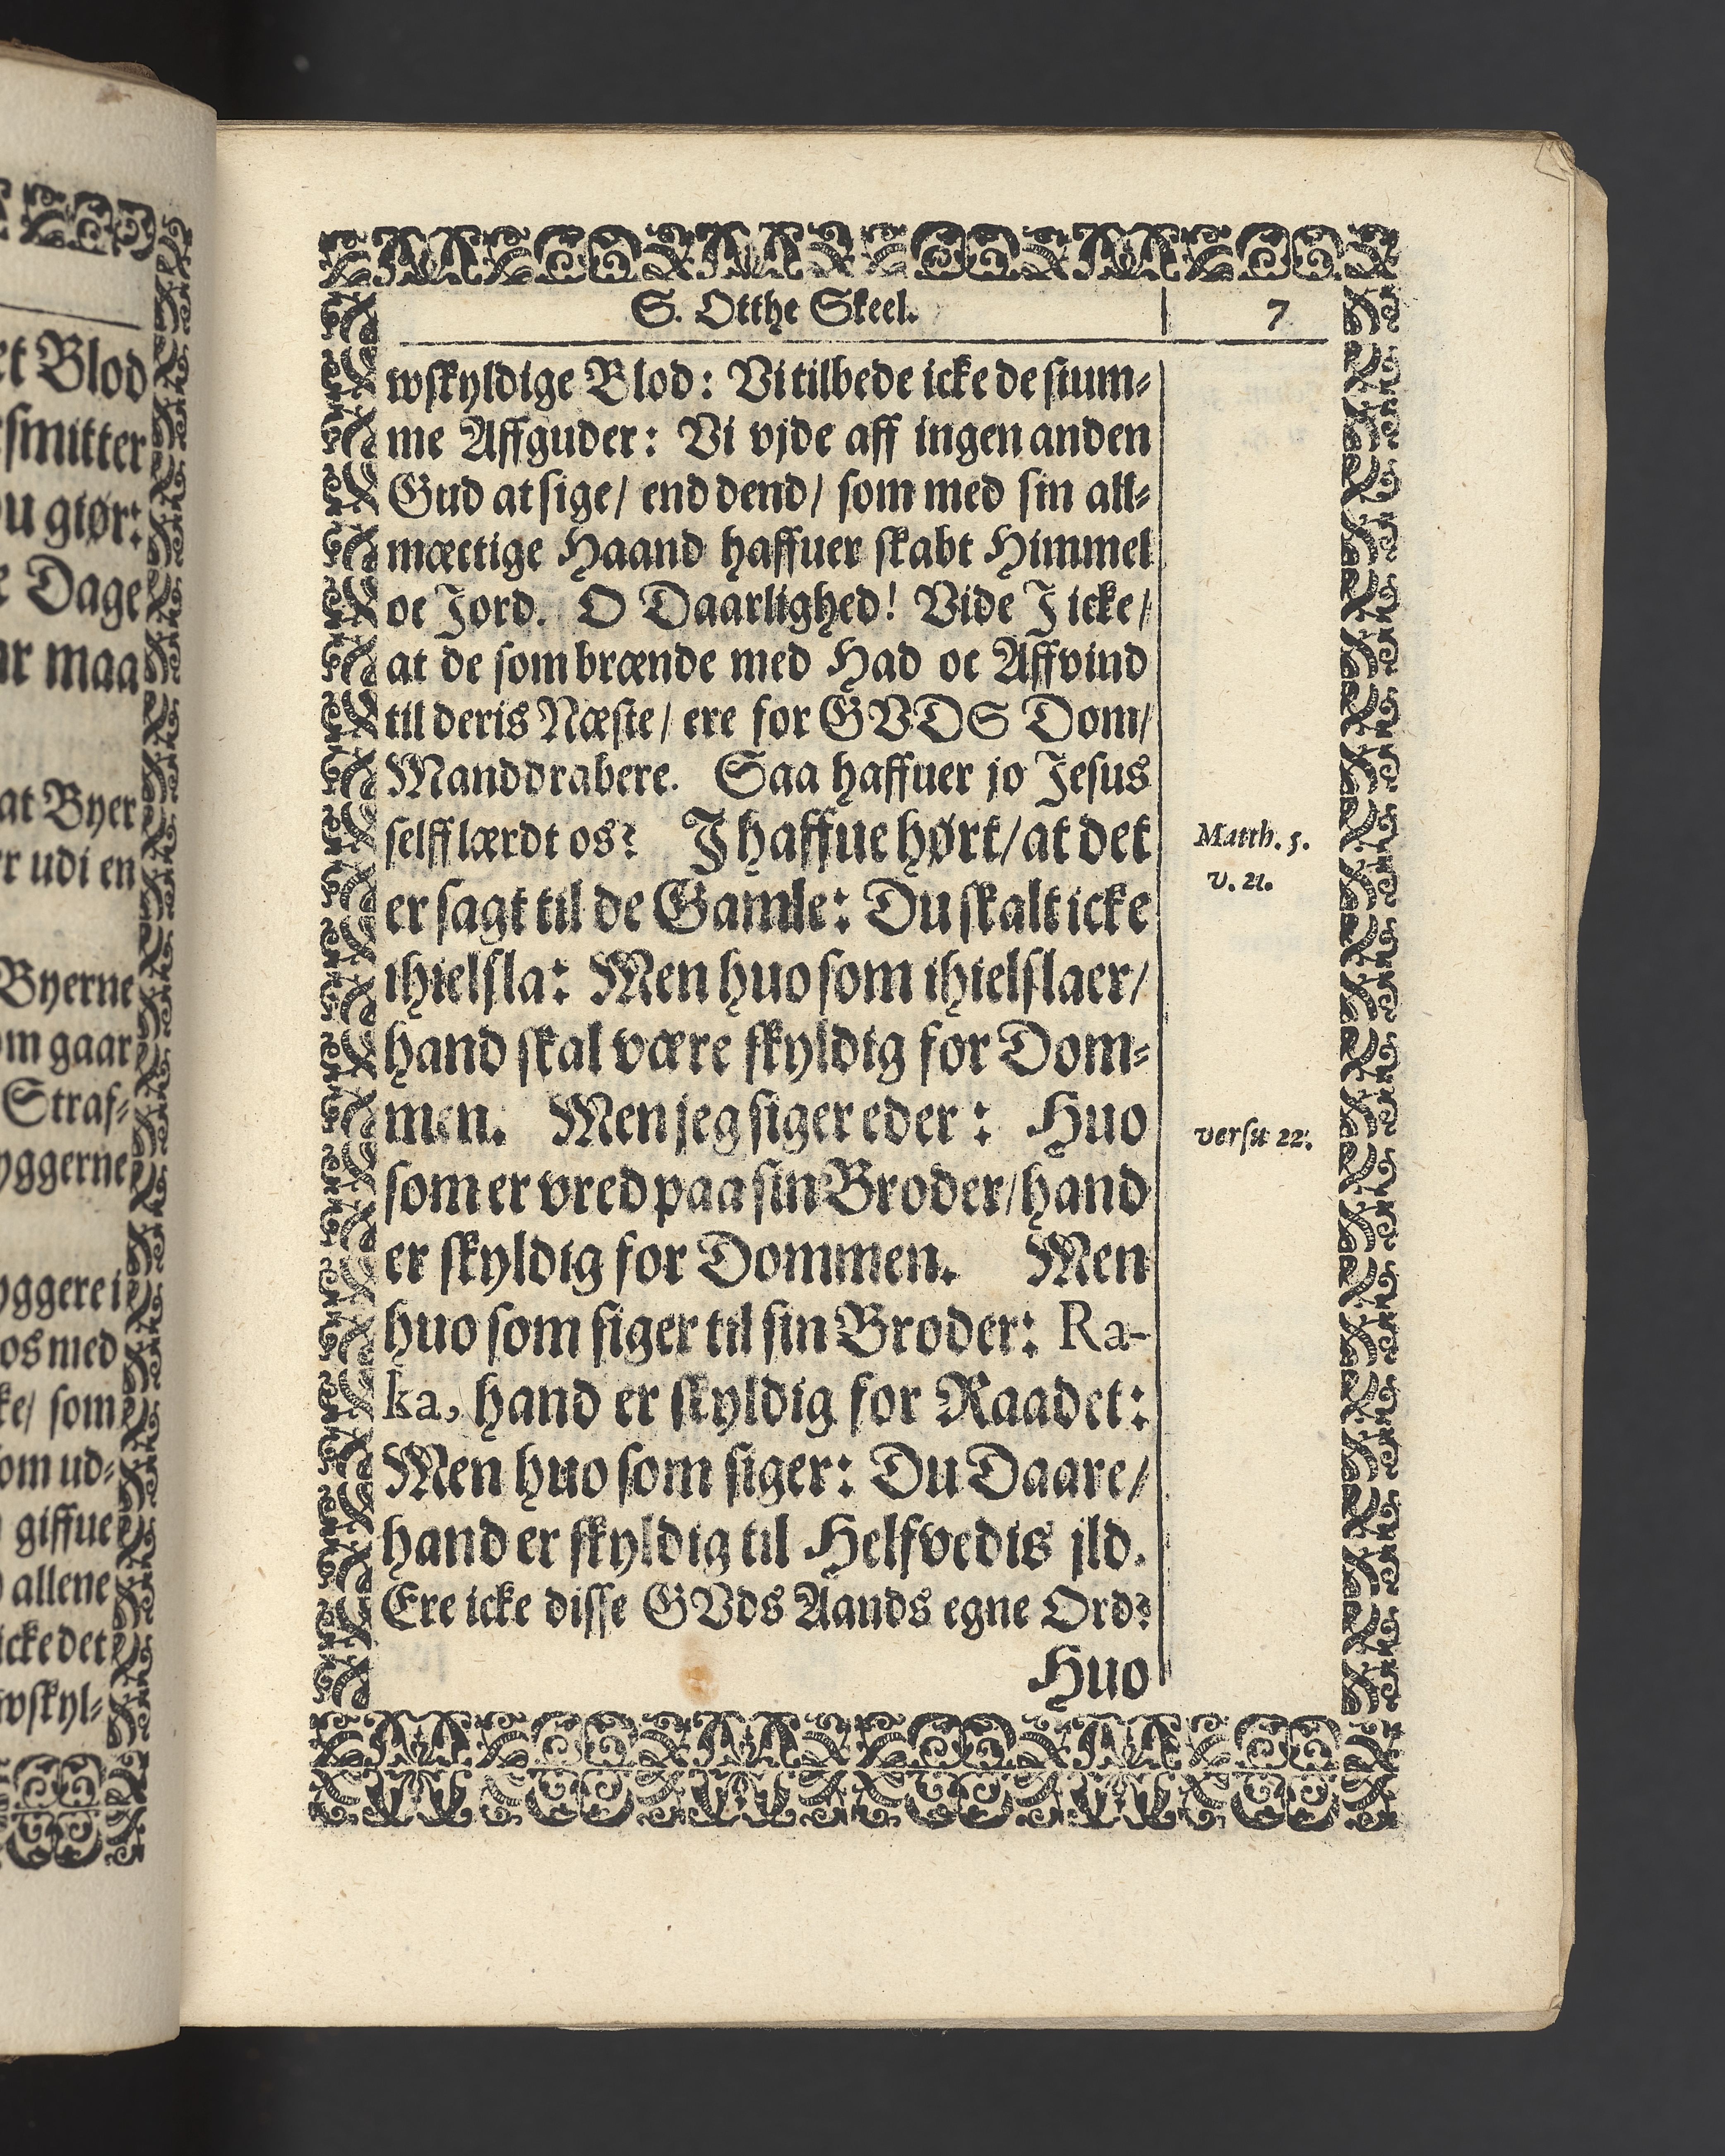 et Blod
smitter
u giør:
Dage
maa
at Byer
udi en
Byerne
gaar
Straf⸗
yggerne
yggere i
os med
som
om ud⸗
giffue
allene
icke det
wskyl⸗
S. Otthe Skeel.
7
wskyldige Blod: Vi tilbede icke de stum⸗
me Affguder: Vi vjde aff ingen anden
Gud at sige/ end dend/ som med sin all⸗
mæctige Haand haffuer skabt Himmel
oc Jord. O Daarlighed! Vide J icke/
at de som brænde med Had oc Affvind
til deris Næste/ ere for GVDS Dom/
Manddrabere. Saa haffuer jo Jesus
selff lærdt os? J haffue hørt/ at det
er sagt til de Gamle: Du skalt icke
ihielsla: Men huo som ihielslaer/
hand skal være skyldig for Dom⸗
men. Men jeg siger eder: Huo
som er vred paa sin Broder/ hand
er skyldig for Dommen. Men
huo som siger til sin Broder: Ra-
ka, hand er skyldig for Raadet:
Men huo som siger: Du Daare/
hand er skyldig til Helfvedis jld.
Ere icke disse GVds Aands egne Ord?
Huo
Matth. 5.
v. 21.
versu 22.